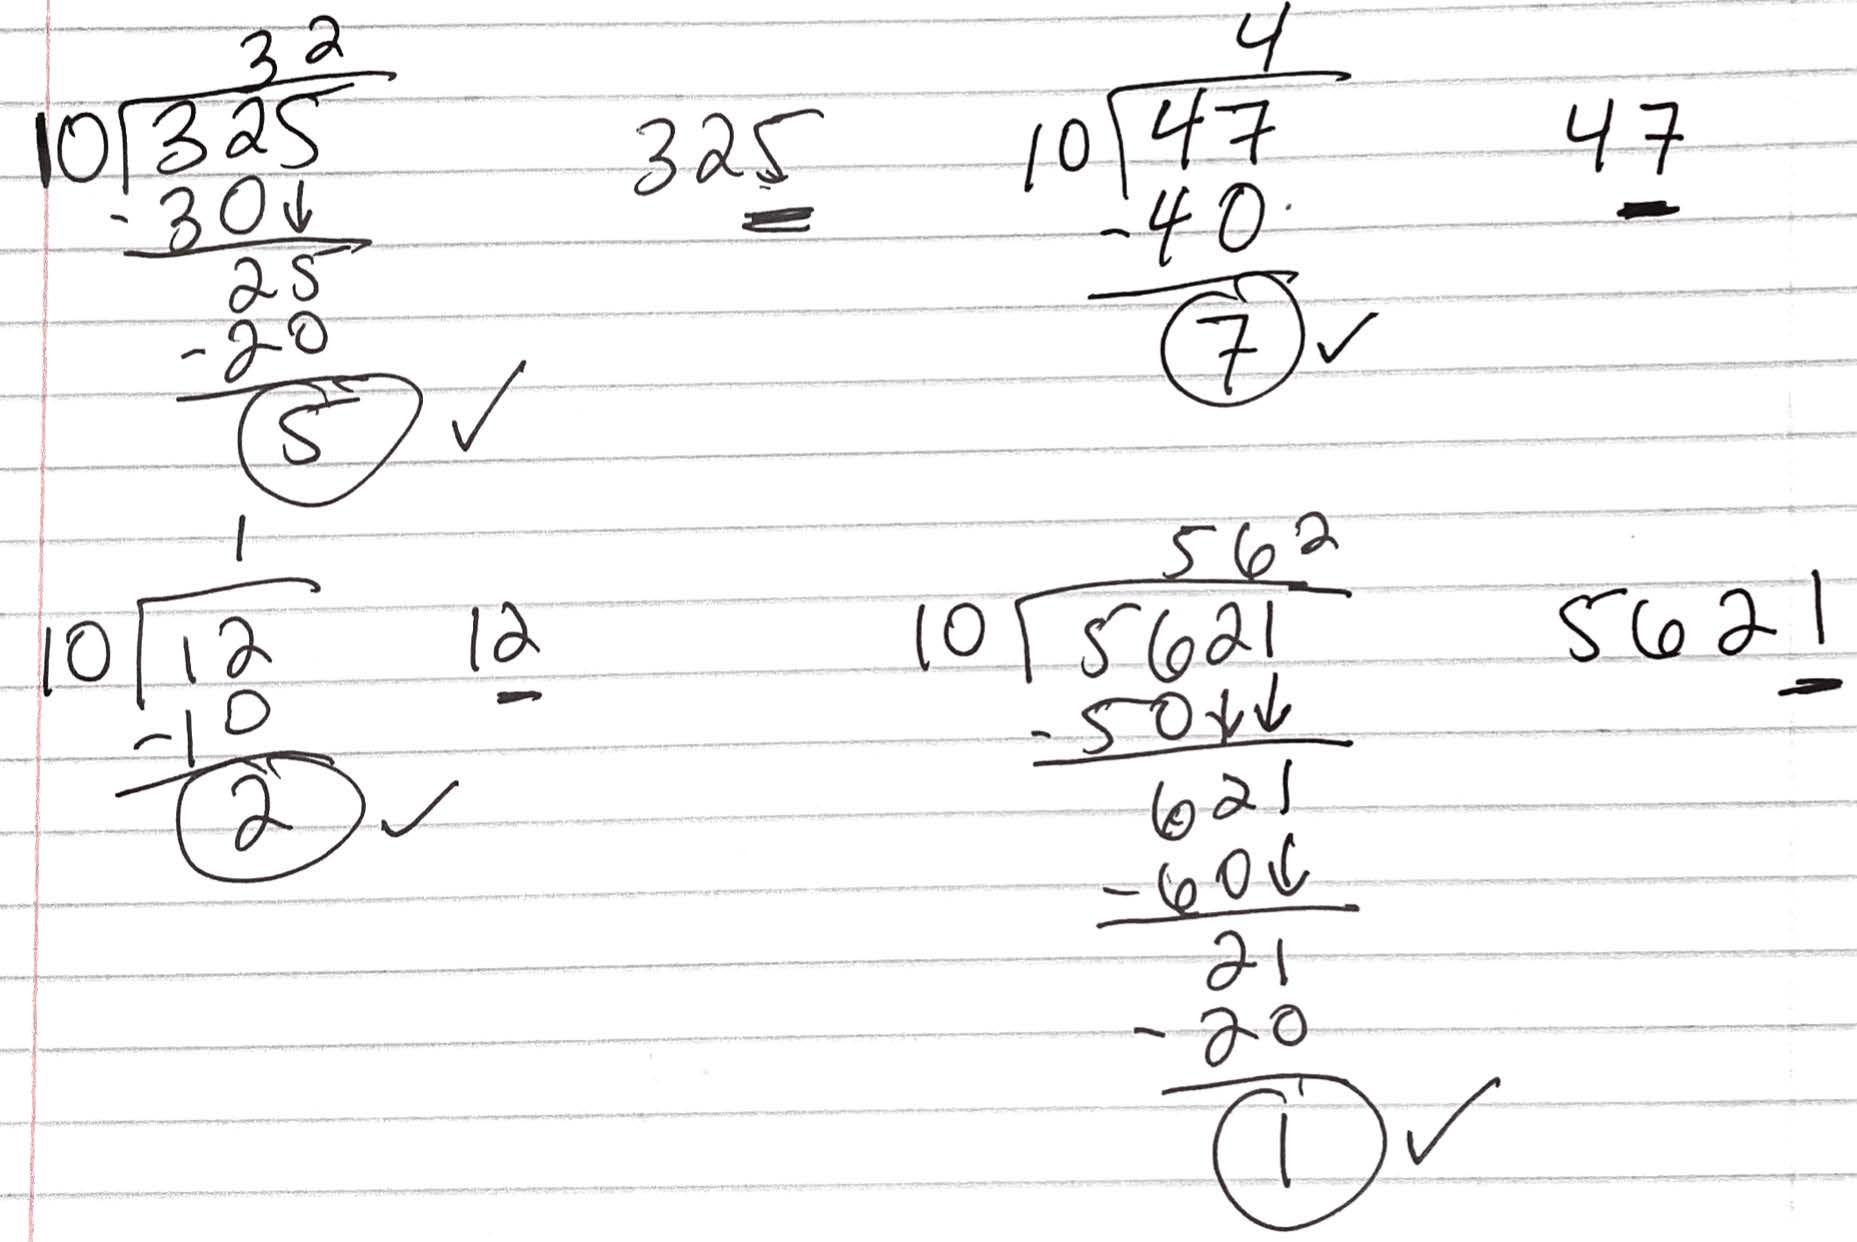 32
10)325
-30↓
25
-20
5 ✓
325
4
10)47
-40
7 ✓
47
1
10)12
-10
2 ✓
12
562
10)5621
-50↓↓
621
-60↓
21
-20
1 ✓
5621